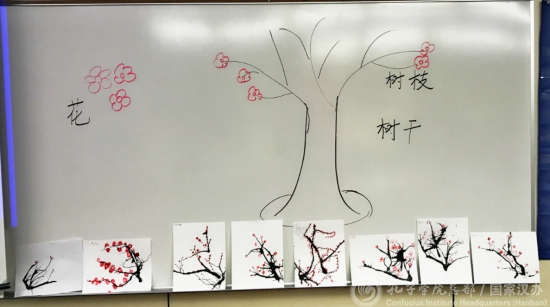 花
树枝
树干
孔子学院总部/国家汉办
Confucius Institute Headquarters(Hanban)